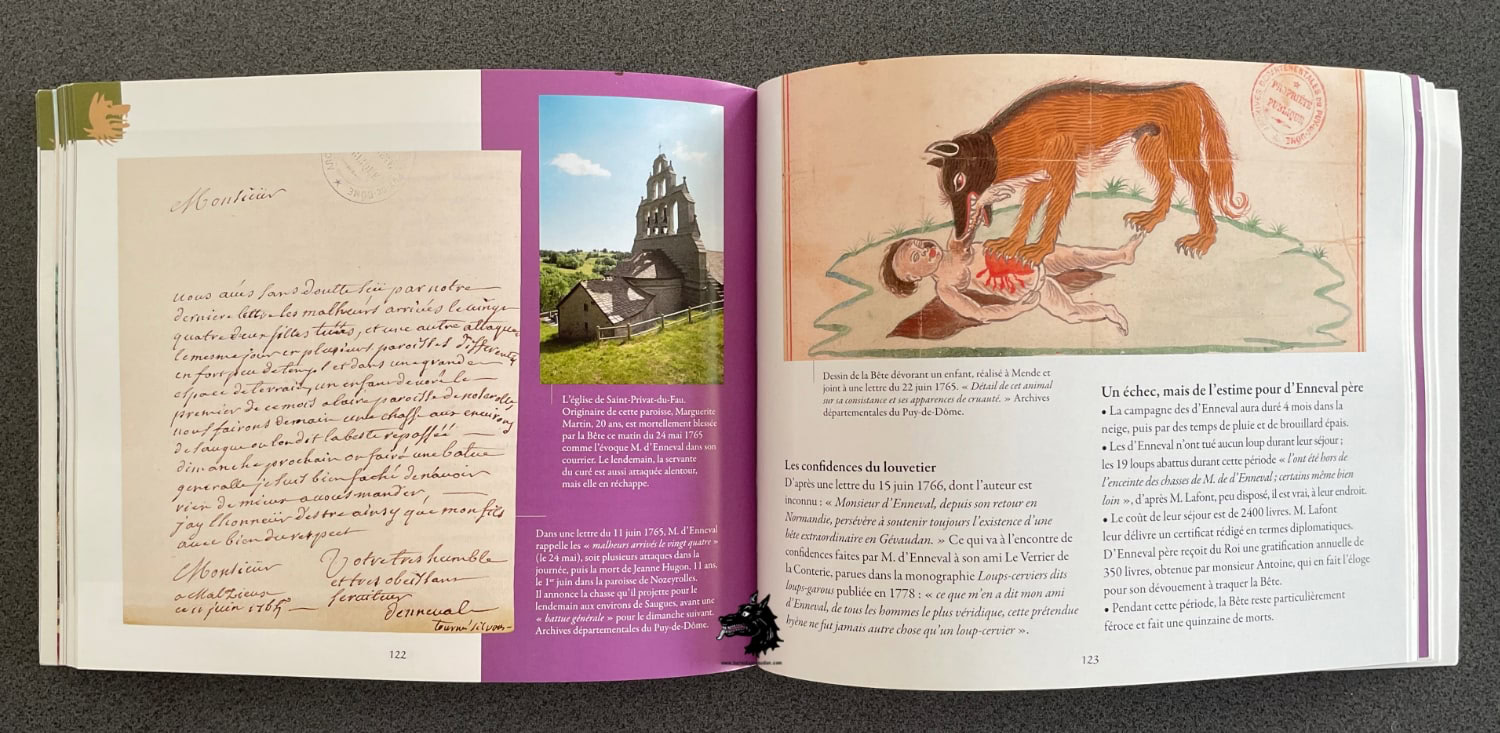 Monsieur
vous avés sans doutte sçu par notre
derniere lettre les malheurs arrivés le vingt
quatre deux filles tuées, et une autre attaquée
le mesme jour en plusieurs paroisses differentes
en fort peu de temps et dans un grand
espace de terrain, un enfant devoré le
premier de ce mois a la ire paroisse de noserolles
nous fairons demain une chasse aux environs
de saugue ou lon dit la beste repassée
dimanche prochain on faira une batue
generalle je suis bien faché de navoir
rien de mieux a vous mander,
jay lhonneur destre ainsy que mon fils
avec bien du respect
Monsieur
a Malzieux
ce 11 juin 1765
Votre tres humble
et tres obeissant
serviteur
denneval
tournés sil vous
L'église de Saint-Privat-du-Fau.
Originaire de cette paroisse, Marguerite
Martin, 20 ans, est mortellement blessée
par la Bête ce matin du 24 mai 1765
comme l'évoque M. d'Enneval dans son
courrier. Le lendemain, la servante
du curé est aussi attaquée alentour,
mais elle en réchappe.
Dans une lettre du 11 juin 1765, M. d'Enneval
rappelle les « malheurs arrivés le vingt quatre »
(le 24 mai), soit plusieurs attaques dans la
journée, puis la mort de Jeanne Hugon, 11 ans,
le 1er juin dans la paroisse de Nozeyrolles.
Il annonce la chasse qu'il projette pour le
lendemain aux environs de Saugues, avant une
« battue générale » pour le dimanche suivant.
Archives départementales du Puy-de-Dôme.
122
PROPRIÉTÉ
PUBLIQUE
Dessin de la Bête dévorant un enfant, réalisé à Mende et
joint à une lettre du 22 juin 1765. « Détail de cet animal
sur sa consistance et ses apparences de cruauté. » Archives
départementales du Puy-de-Dôme.
Les confidences du louvetier
D'après une lettre du 15 juin 1766, dont l'auteur est
inconnu : « Monsieur d'Enneval, depuis son retour en
Normandie, persévère à soutenir toujours l'existence d'une
bête extraordinaire en Gévaudan. » Ce qui va à l'encontre de
confidences faites par M. d'Enneval à son ami Le Verrier de
la Conterie, parues dans la monographie Loups-cerviers dits
loups-garous publiée en 1778 : « ce que m'en a dit mon ami
d'Enneval, de tous les hommes le plus véridique, cette prétendue
hyène ne fut jamais autre chose qu'un loup-cervier ».
Un échec, mais de l'estime pour d'Enneval père
• La campagne des d'Enneval aura duré 4 mois dans la
neige, puis par des temps de pluie et de brouillard épais.
• Les d'Enneval n'ont tué aucun loup durant leur séjour ;
les 19 loups abattus durant cette période « l'ont été hors de
l'enceinte des chasses de M. de d'Enneval ; certains même bien
loin », d'après M. Lafont, peu disposé, il est vrai, à leur endroit.
• Le coût de leur séjour est de 2400 livres. M. Lafont
leur délivre un certificat rédigé en termes diplomatiques.
D'Enneval père reçoit du Roi une gratification annuelle de
350 livres, obtenue par monsieur Antoine, qui en fait l'éloge
pour son dévouement à traquer la Bête.
• Pendant cette période, la Bête reste particulièrement
féroce et fait une quinzaine de morts.
123